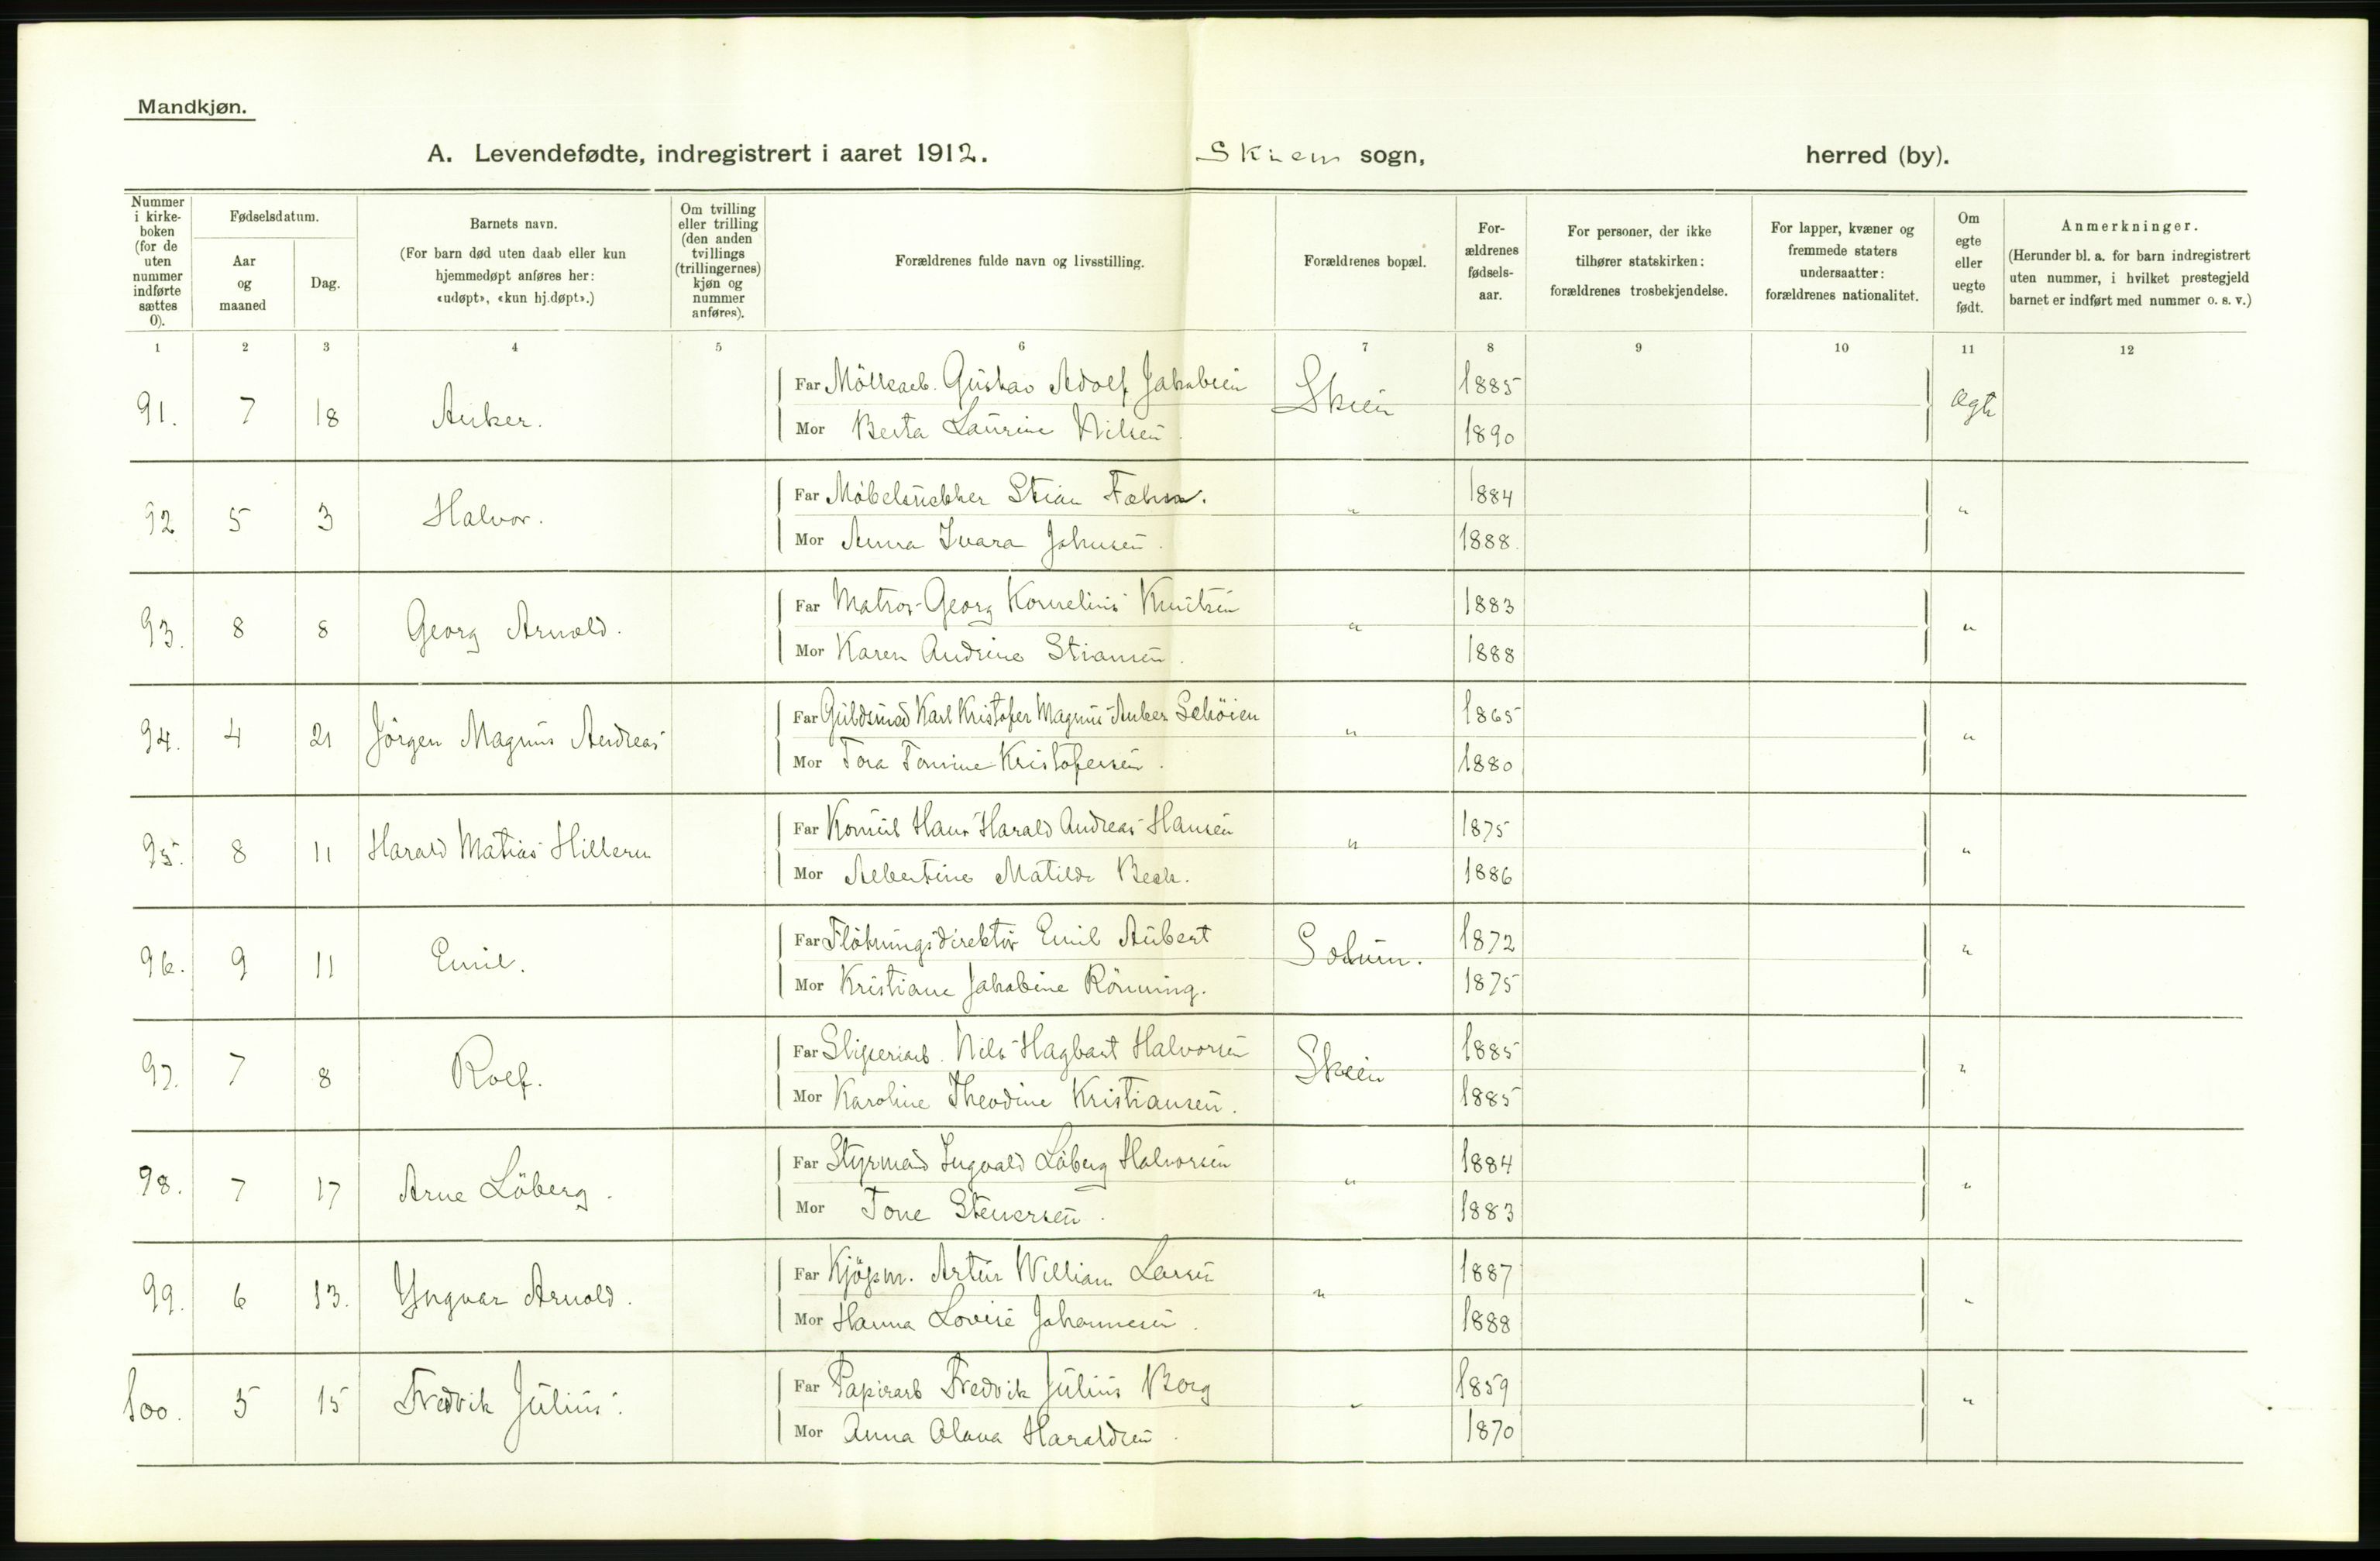 Mandkjøn.
A. Levendefødte, indregistrert i aaret 1912. Skien sogn, herred (by).
Nummer i kirke-boken (for de uten nummer indførte sættes 0).
Fødselsdatum.
Aar og maaned
Dag.
Barnets navn.
(For barn død uten daab eller kun hjemmedøpt anføres her: «udøpt», «kun hj.døpt».)
Om tvilling eller trilling (den anden tvillings (trillingernes) kjøn og nummer anføres).
Forældrenes fulde navn og livsstilling.
Forældrenes bopæl.
For-ældrenes fødsels-aar.
For personer, der ikke tilhører statskirken: forældrenes trosbekjendelse.
For lapper, kvæner og fremmede staters undersaatter: forældrenes nationalitet.
Om egte eller uegte født.
Anmerkninger.
(Herunder bl. a. for barn indregistrert uten nummer, i hvilket prestegjeld barnet er indført med nummer o. s. v.)
1 2 3 4 5 6 7 8 9 10 11 12
91. 7 18 Anker. Far Möllearb. Gustav Adolf Jakobsen Skien 1885 ægte
Mor Berta Laurine Nilsen 1890
92 5 3 Halvor. Far Møbelsnekker Stian " 1884 "
Mor Anna Ivara Johnsen. 1888.
93. 8 8 Georg Arnold. Far Matros Georg Kornelius Knutsen " 1883 "
Mor Karen Andrine Stiansen. 1888
94. 4 21 Jörgen Magnus Andreas Far Guldsmed Karl Kristofer Magnus Anker Schöien " 1865 "
Mor Tora Tomine Kristofersen. 1880
95. 8 11 Harald Matias Far Konsul Hans Harald Andreas Hansen " 1875 "
Mor Albertine Matilde Beck. 1886
96. 9 11 Emil. Far Flötningsdirektör Emil Aubert Solum. 1872 "
Mor Kristiane Jakobine Rönning. 1875
97. 7 8 Rolf. Far Sliperiarb. Nils Hagbart Halvorsen Skien 1885 "
Mor Karoline Theodine Kristiansen. 1885
98. 7 17 Arne Löberg. Far Styrmand Ingvald Löberg Halvorsen " 1884 "
Mor Tone Stenersen. 1883
99. 6 13. Yngvar Arnold. Far Kjöpm. Artur William Larsen " 1887 "
Mor Hanna Lovise Johannesen. 1888
100. 5 15 Fredrik Julius. Far Papirarb Fredrik Julius Borg " 1859 "
Mor Anna Olava Haraldsen. 1870